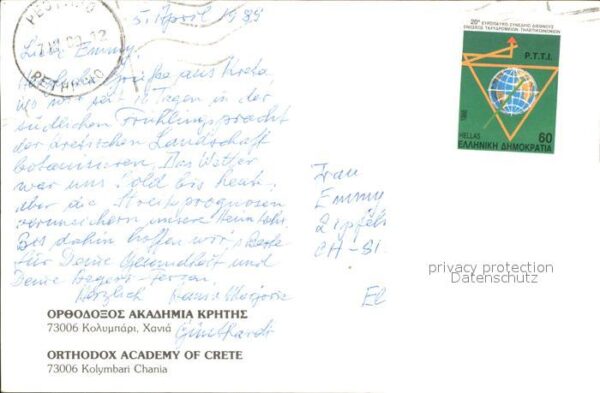 ΡΕΘΥΜΝΟ
RETHYMNO
5. April 1989
Liebe Emmy,
Grüsse aus Kreta,
wo wir seit 10 Tagen in der
südlichen Frühlingspracht
der kretischen Landschaft
botanisieren. Das Wetter
war uns hold bis heute,
aber die Streikprognosen
verunsichern unsere Heimkehr.
Bis dahin hoffen wir's Beste
für Deine Gesundheit und
Deine
Herzlich
20º ΕΥΡΩΠΑΪΚΟ ΣΥΝΕΔΡΙΟ ΔΙΕΘΝΟΥΣ
ΕΝΩΣΕΩΣ ΤΑΧΥΔΡΟΜΙΚΩΝ ΤΗΛΕΠΙΚΟΙΝΩΝΙΩΝ
P.T.T.I.
HELLAS 60
ΕΛΛΗΝΙΚΗ ΔΗΜΟΚΡΑΤΙΑ
Frau
Emmy
CH-
privacy protection
Datenschutz
ΟΡΘΟΔΟΞΟΣ ΑΚΑΔΗΜΙΑ ΚΡΗΤΗΣ
73006 Κολυμπάρι, Χανιά
ORTHODOX ACADEMY OF CRETE
73006 Kolymbari Chania